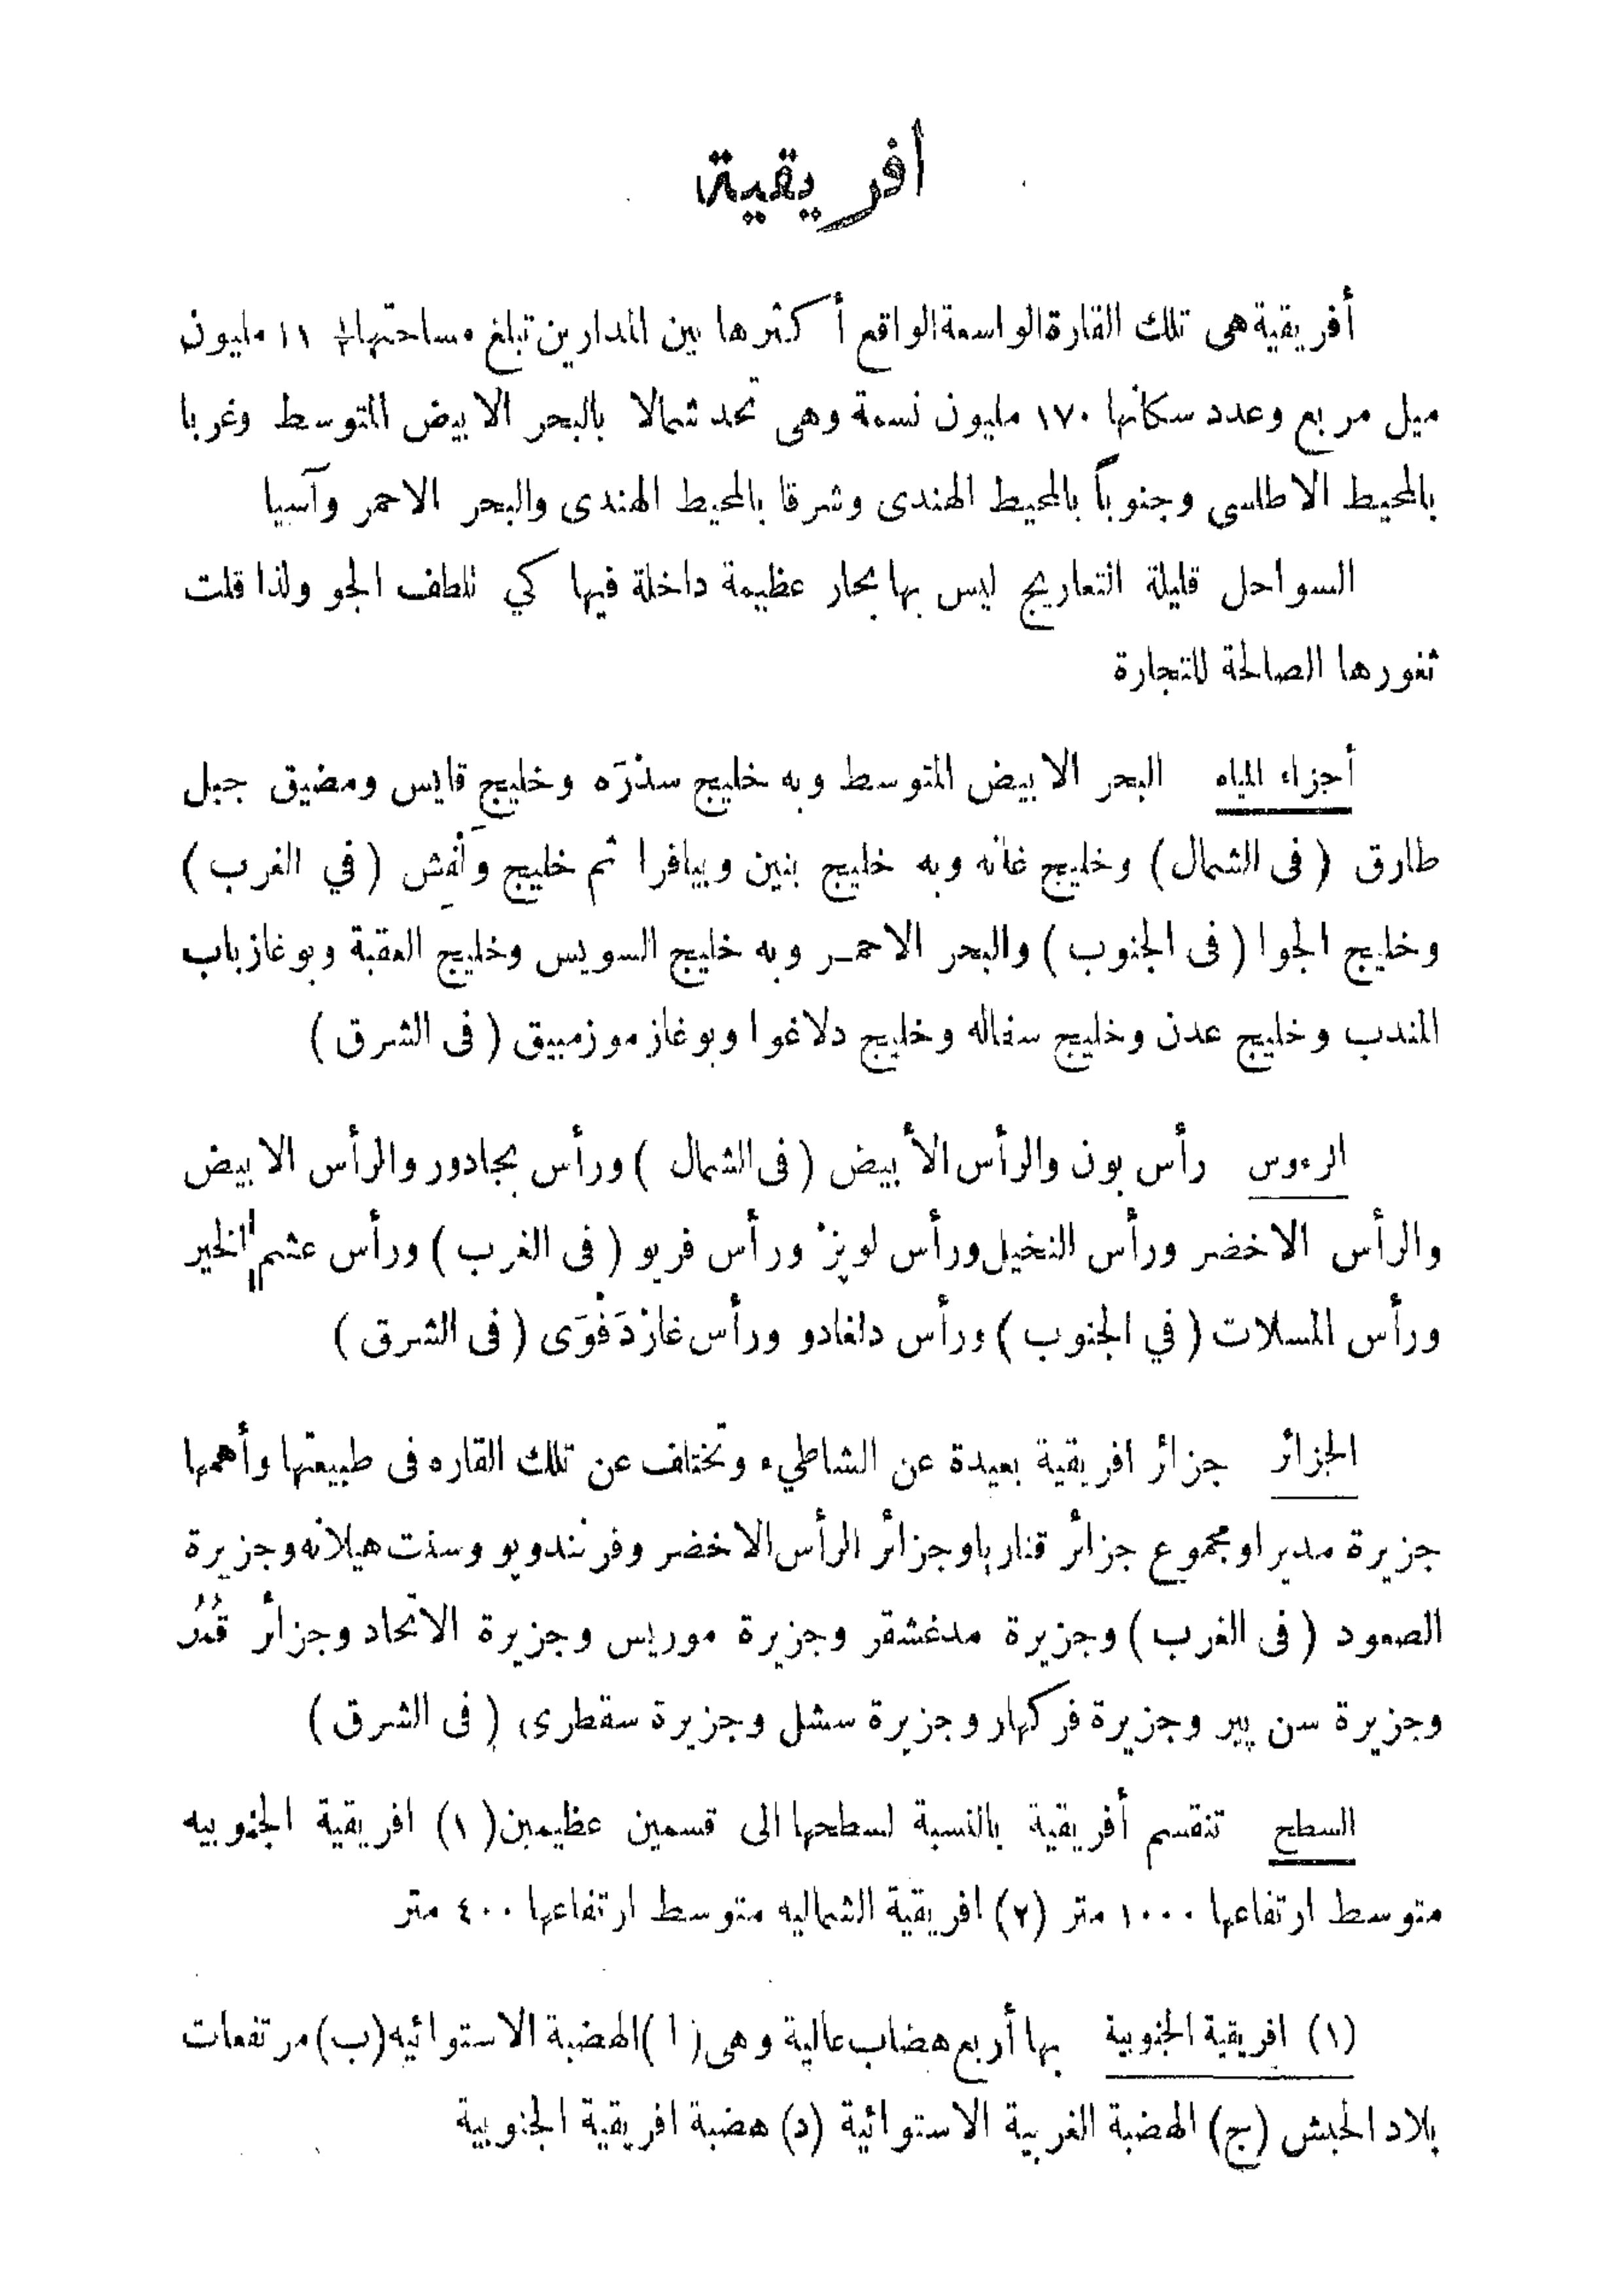 افريقية
أفريقية هى تلك القارة الواسعة الواقع أكثرها بين المدارين تبلغ مساحتها ١١ مليون
ميل مربع وعدد سكانها ١٧٠ مليون نسمة وهى تحد شمالا بالبحر الابيض المتوسط وغربا
بالمحيط الاطلسى وجنوباً بالمحيط الهندى وشرقا بالمحيط الهندى والبحر الاحمر وآسيا
السواحل قليلة التعاريج ليس بها بحار عظيمة داخلة فيها كي تلطف الجو ولذا قلت
ثغورها الصالحة للتجارة
أجزاء المياه البحر الابيض المتوسط وبه خليج سدْرَه وخليج قابس ومضيق جبل
طارق (فى الشمال) وخليج غانه وبه خليج بنين وبيافرا ثم خليج وَلْفِش (في الغرب)
وخليج الجوا (فى الجنوب) والبحر الاحمر وبه خليج السويس وخليج العقبة وبوغاز باب
المندب وخليج عدن وخليج سفاله وخليج دلاغوا وبوغاز موزمبيق (فى الشرق)
الرءوس رأس بون والرأس الأبيض (فى الشمال) ورأس بجادور والرأس الابيض
والرأس الاخضر ورأس النخيل ورأس لوپزْ ورأس فريو (فى الغرب) ورأس عشم الخير
ورأس المسلات (في الجنوب) ورأس دلغادو ورأس غازْدَفْوَى (فى الشرق)
الجزائر جزائر افريقية بعيدة عن الشاطيء وتختلف عن تلك القاره فى طبيعتها وأهمها
جزيرة مديرا ومجموع جزائر قناريا وجزائر الرأس الاخضر وفرنندوبو وسنت هيلانه وجزيرة
الصعود (فى الغرب) وجزيرة مدغشقر وجزيرة موريس وجزيرة الاتحاد وجزائر قُمُر
وجزيرة سن پير وجزيرة فركهار وجزيرة سشل وجزيرة سقطرى (فى الشرق)
السطح تنقسم أفريقية بالنسبة لسطحها الى قسمين عظيمين (١) افريقية الجنوبيه
متوسط ارتفاعها ١٠٠٠ متر (٢) افريقية الشماليه متوسط ارتفاعها ٤٠٠ متر
(١) افريقية الجنوبية بها أربع هضاب عالية وهى (ا) الهضبة الاستوائيه (ب) مرتفعات
بلاد الحبش (ج) الهضبة الغربية الاستوائية (د) هضبة افريقية الجنوبية